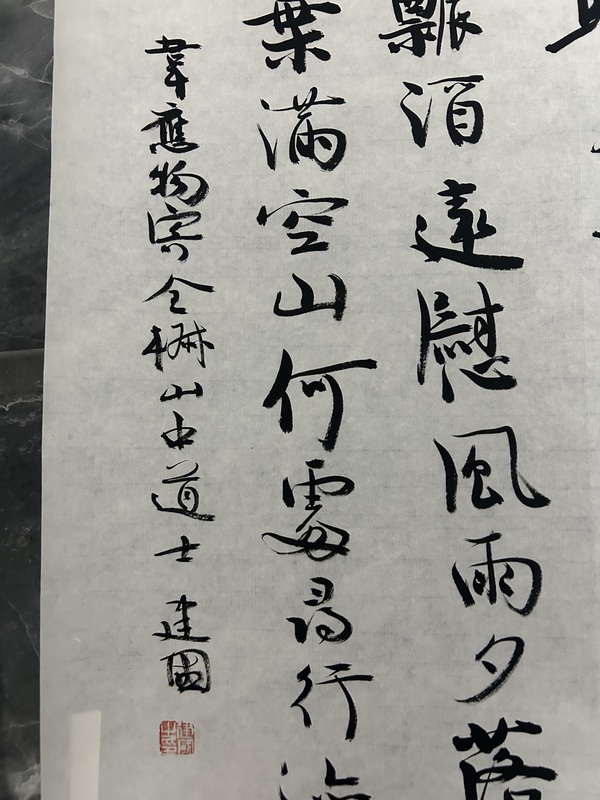 瓢酒遠慰風雨夕落
葉滿空山何處尋行
韋應物寄全椒山中道士 建國